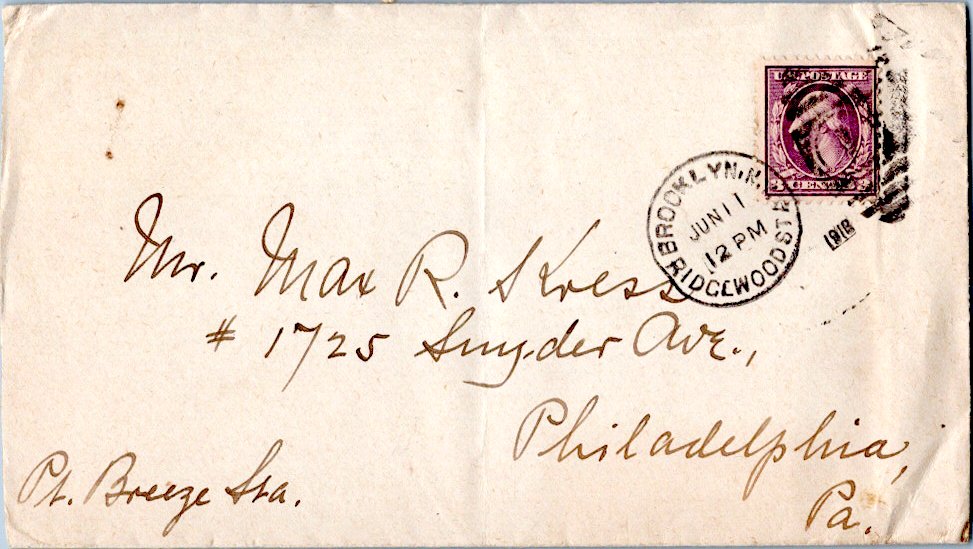 U.S. POSTAGE
3 CENTS 3
BROOKLYN, N.Y.
JUN 11
12 PM
RIDGEWOOD STA.
1918
Mr. Max R. Kress
# 1725 Snyder Ave.,
Philadelphia,
Pa.
Pt. Breeze Sta.